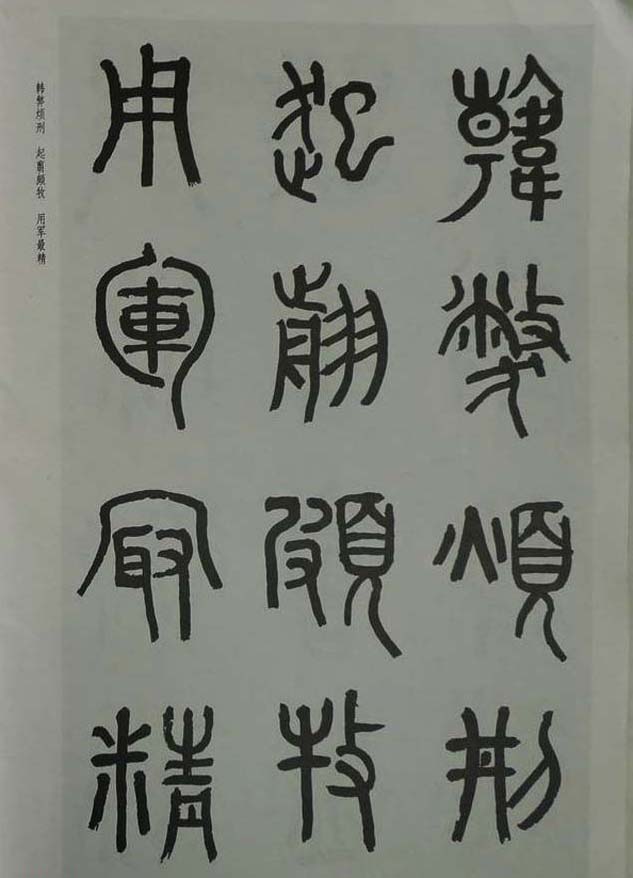 韓弊煩刑
起翦頗牧
用軍最精
韩弊烦刑 起翦颇牧 用军最精